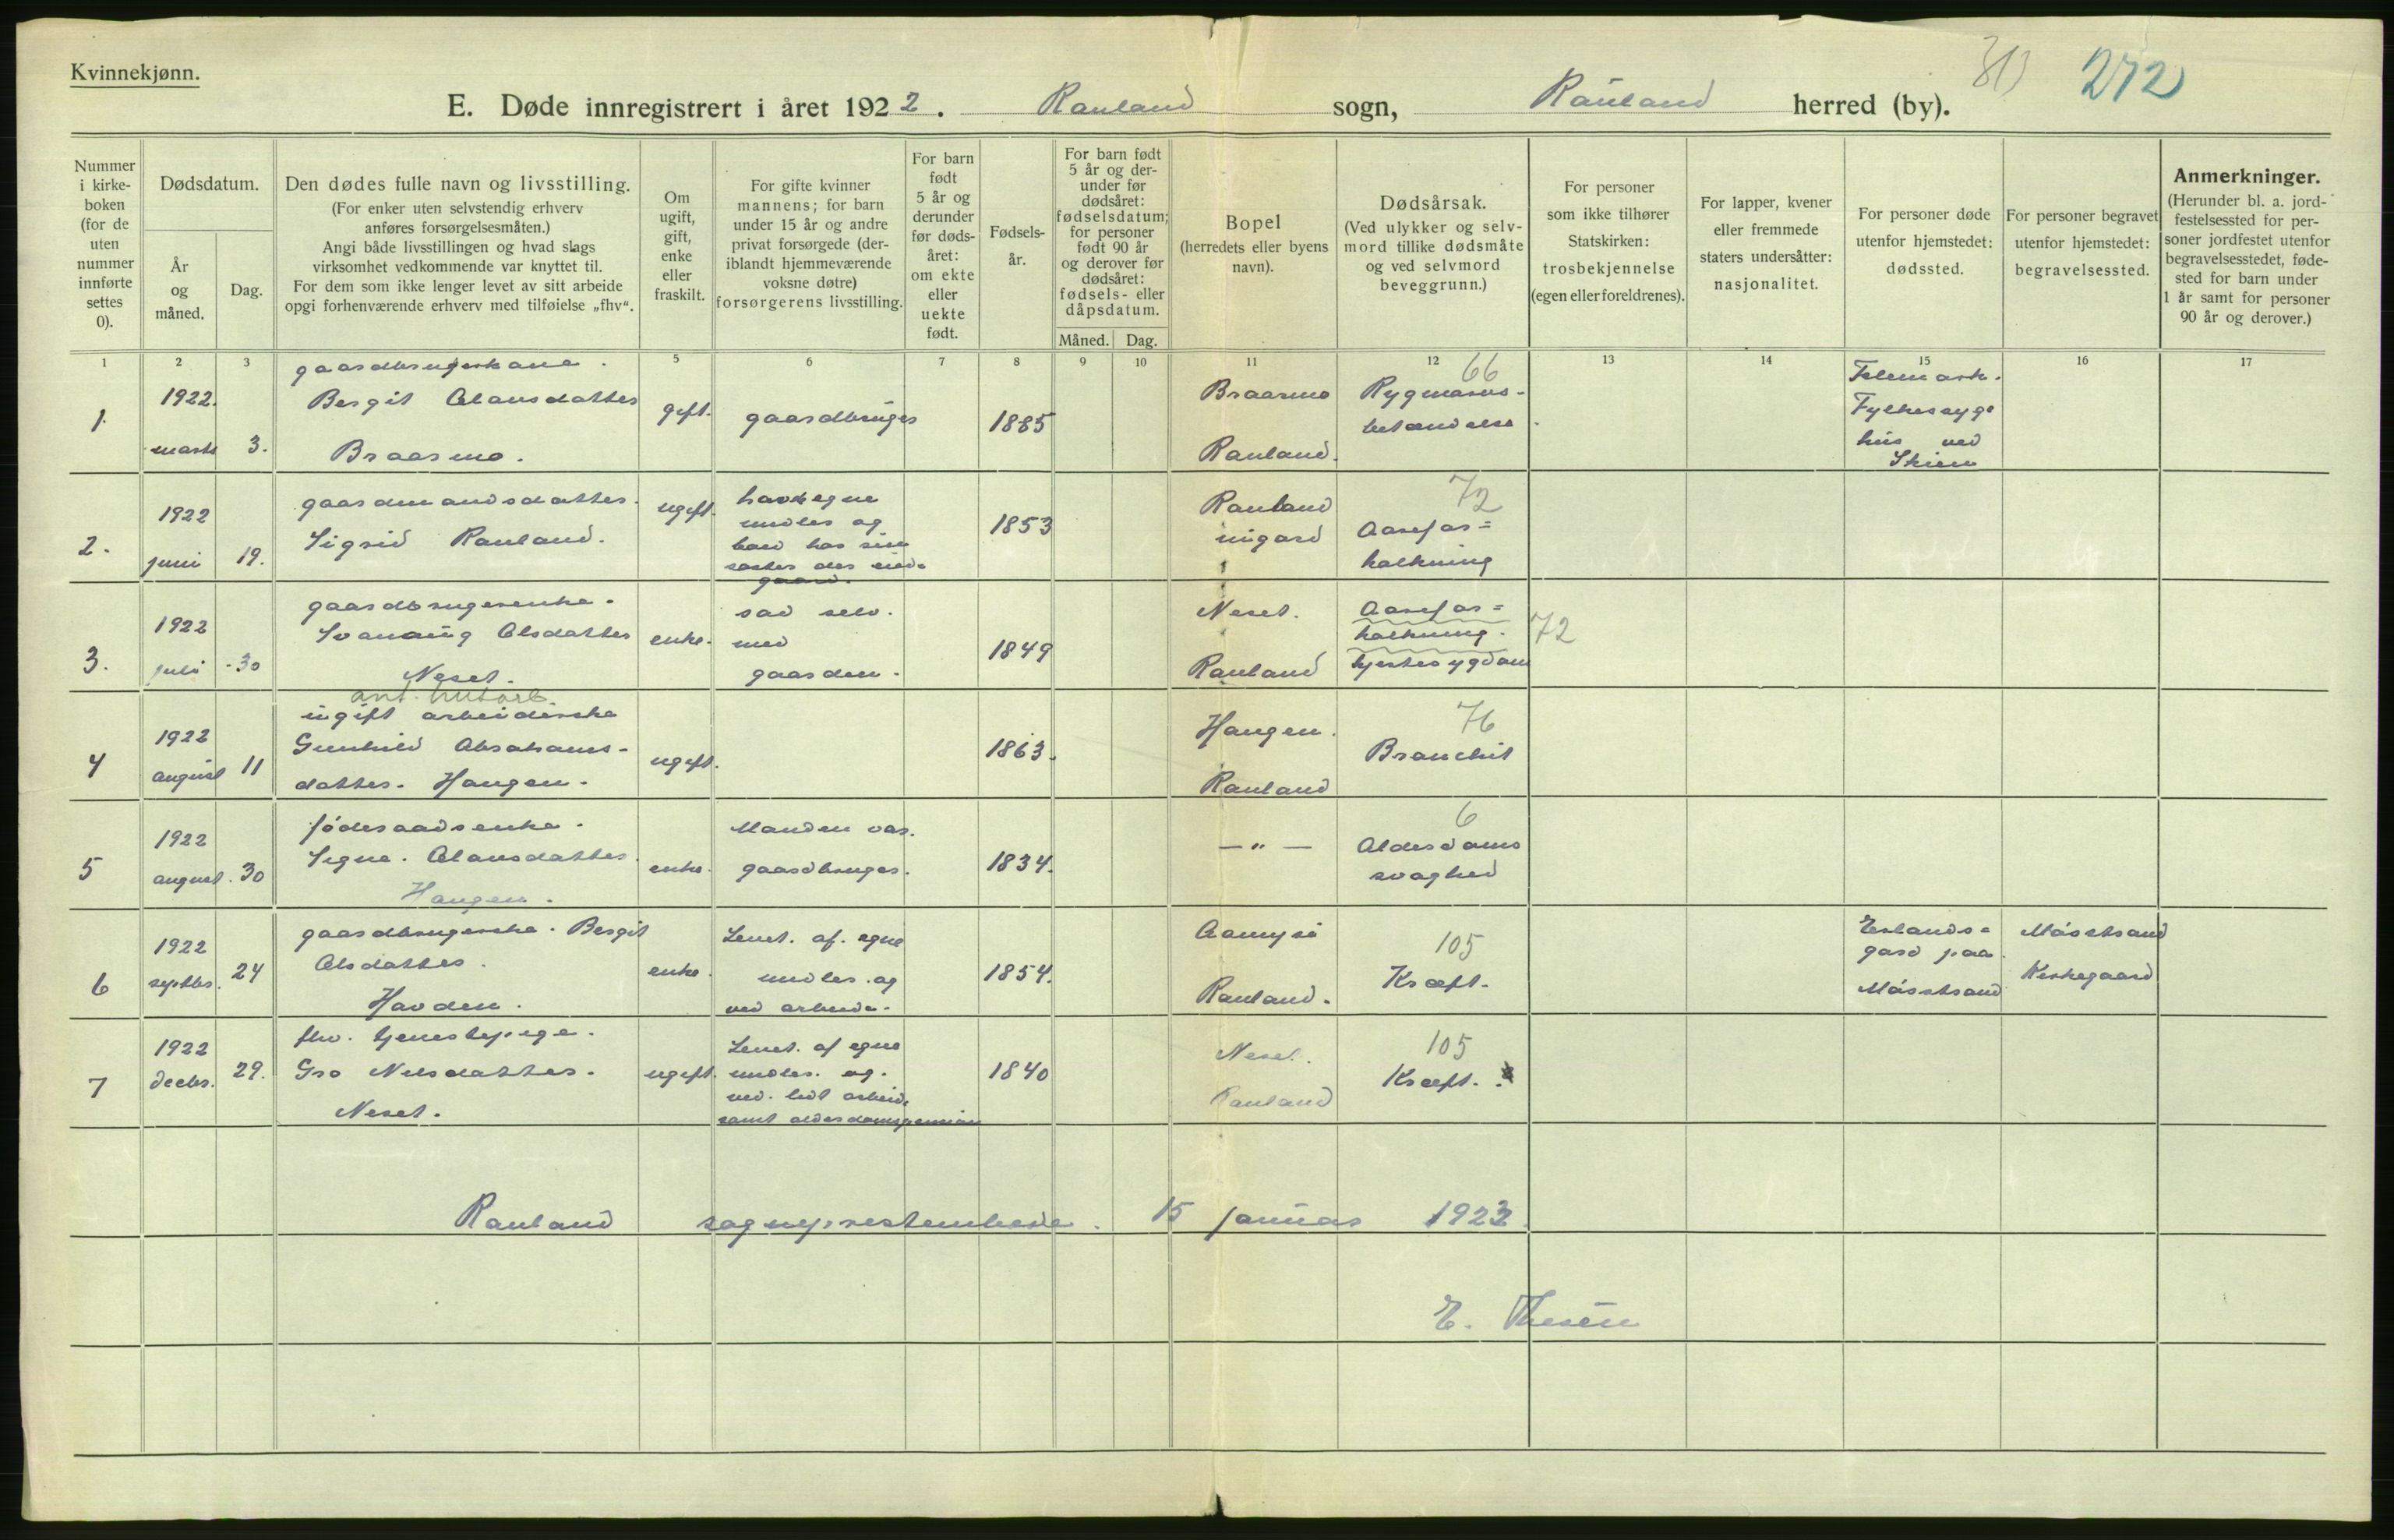 Kvinnekjønn.
272
E. Døde innregistrert i året 1922. Rauland sogn, Rauland herred (by).
Nummer i kirke-boken (for de uten nummer innførte settes 0).
Dødsdatum.
År og måned.
Dag.
Den dødes fulle navn og livsstilling.
(For enker uten selvstendig erhverv
anføres forsørgelsesmåten.)
Angi både livsstillingen og hvad slags
virksomhet vedkommende var knyttet til.
For dem som ikke lenger levet av sitt arbeide
opgi forhenværende erhverv med tilføielse „fhv“.
Om
ugift,
gift,
enke
eller
fraskilt.
For gifte kvinner
mannens; for barn
under 15 år og andre
privat forsørgede (der-
iblandt hjemmeværende
voksne døtre)
forsørgerens livsstilling.
For barn
født
5 år og
derunder
før døds-
året:
om ekte
eller
uekte
født.
Fødsels-
år.
For barn født
5 år og der-
under før
dødsåret:
fødselsdatum;
for personer
født 90 år
og derover før
dødsåret:
fødsels- eller
dåpsdatum.
Måned. Dag.
Bopel
(herredets eller byens
navn).
Dødsårsak.
(Ved ulykker og selv-
mord tillike dødsmåte
og ved selvmord
beveggrunn.)
For personer
som ikke tilhører
Statskirken:
trosbekjennelse
(egen eller foreldrenes).
For lapper, kvener
eller fremmede
staters undersåtter:
nasjonalitet.
For personer døde
utenfor hjemstedet:
dødssted.
For personer begravet
utenfor hjemstedet:
begravelsessted.
Anmerkninger.
(Herunder bl. a. jord-
festelsessted for per-
soner jordfestet utenfor
begravelsesstedet, føde-
sted for barn under
1 år samt for personer
90 år og derover.)
1 2 3 5 6 7 8 9 10 11 12 13 14 15 16 17
1. 1922. marts 3.
gaardbrugerkone.
Bergit Olavsdatter
Braarmo.
gift. gaardbruger 1885
Braarmo
Rauland.
66
Rygmarvs-
betændelse.
Telemark.
Fylkessyge
hus ved
Skien
2. 1922 juni 19.
gaardmandsdatter.
Sigrid Rauland.
ugift.
havde egne
midler og
1853
Rauland
nigard
72
Aarefor=
kalkning
3. 1922 juli 30
gaardbrugerenke.
Svanaug Olsdatter
Neset.
enke.
sad selv.
med
gaarden.
1849
Neset.
Rauland
Aarefor=
kalkning.
hjertesygdom
72
4 1922 august 11
ugift arbeiderske
Gunhild Abrahams-
datter. Haugen.
ugift. 1863.
Haugen.
Rauland
76
Bronchit
5 1922 august. 30
føderaadsenke.
Signe. Olavsdatter.
Haugen.
enke.
Manden var.
gaardbruger.
1834.
— " —
6
Alderdoms
svaghed
6 1922 septbr. 24
gaardbrugerske. Bergit
Olsdatter.
Hovden.
enke.
Levet. af. egne
midler. og
ved arbeide.
1854.
Aamyri
Rauland.
105
Kræft.
Erlands=
gard paa.
Møsstrand
Møsstrand
Kirkegaard
7 1922 decbr. 29.
fhv. tjenestepige.
Gro Nilsdatter.
Neset.
ugift.
Levet. af egne
midler. og.
ved. lidt arbeide
samt alderdomspension
1840
Neset.
Rauland
105
Kræft.
Rauland sogneprestembede. 15 januar 1923.
E. Thesen